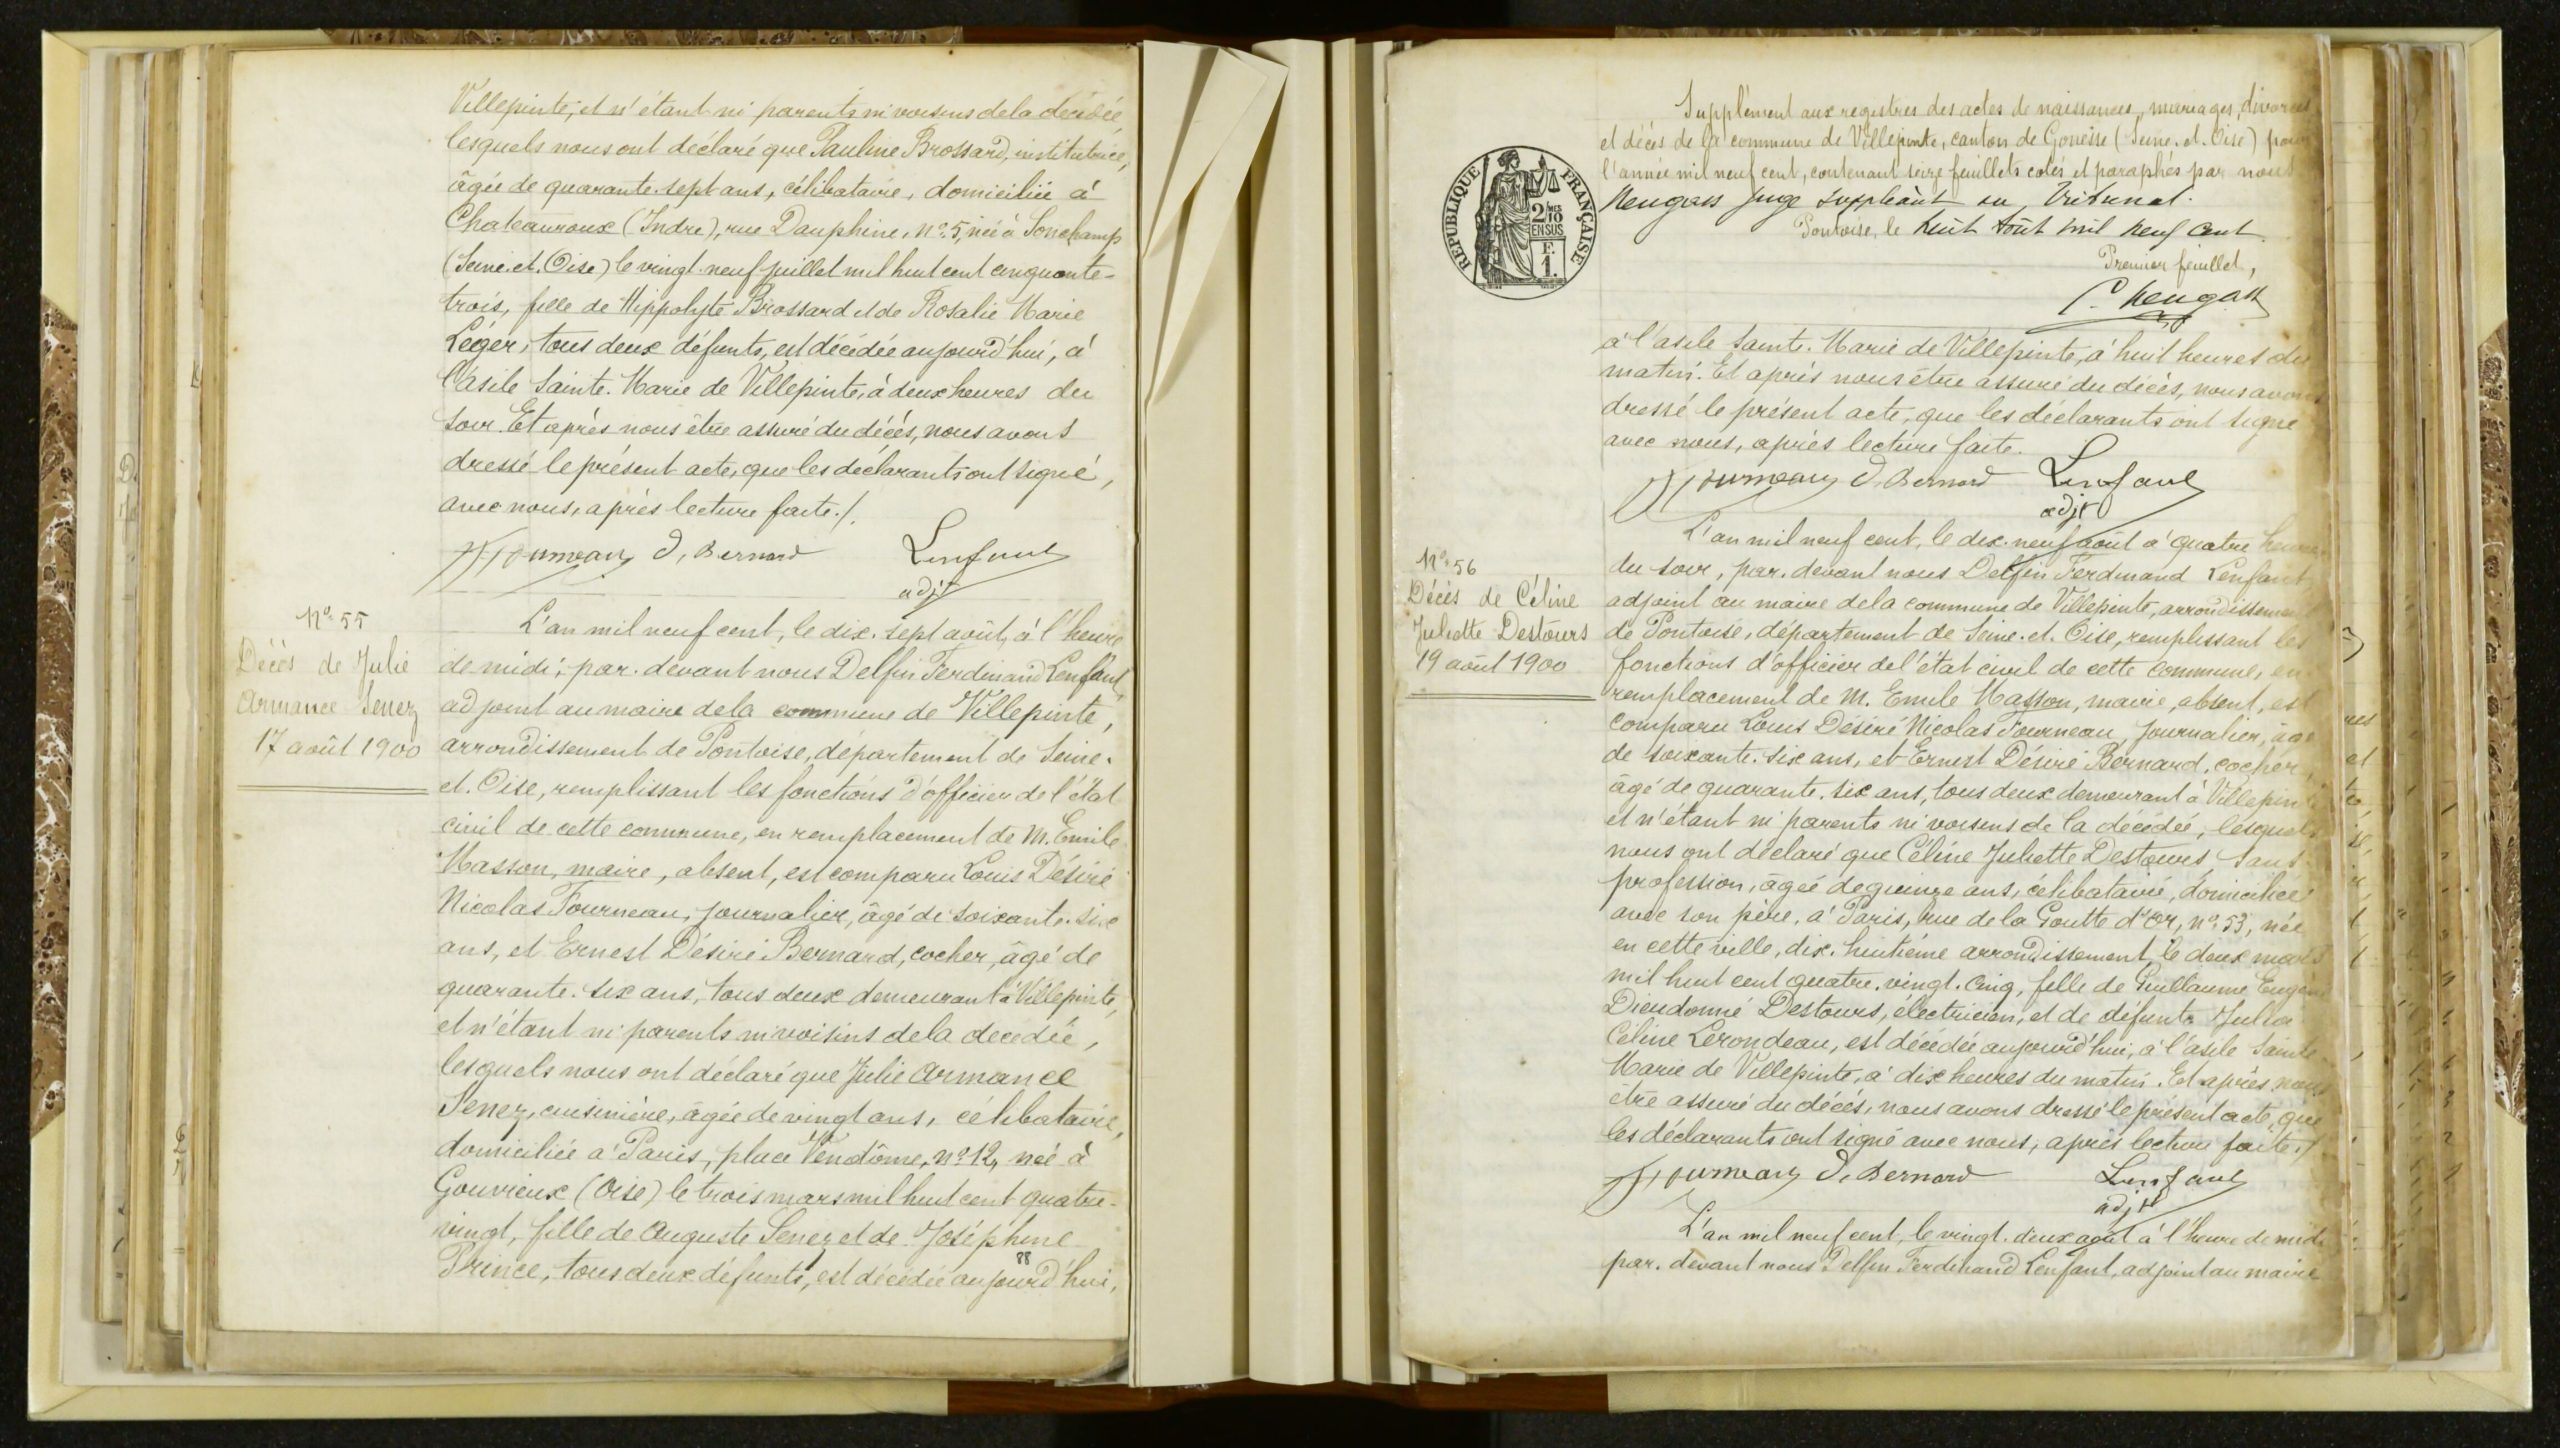 Villepinte, et n'étant ni parents ni voisins de la décédée
lesquels nous ont déclaré que Pauline Brossard, institutrice,
âgée de quarante-sept ans, célibataire, domiciliée à
Chateauroux (Indre), rue Dauphine, n° 5, née à Sonchamp
(Seine-et-Oise) le vingt-neuf juillet mil huit cent cinquante-
trois, fille de Hippolyte Brossard et de Rosalie Marie
Léger, tous deux défunts, est décédée aujourd'hui, à
l'asile Sainte-Marie de Villepinte, à deux heures du
soir. Et après nous être assuré du décès, nous avons
dressé le présent acte, que les déclarants ont signé,
avec nous, après lecture faite./.
Fourneau D. Bernard Lenfant
adjt
N° 55
Décès de Julie
Armance Senez
17 août 1900
L'an mil neuf cent, le dix-sept août, à l'heure
de midi, par-devant nous Delfin Ferdinand Lenfant,
adjoint au maire de la commune de Villepinte,
arrondissement de Pontoise, département de Seine-
et-Oise, remplissant les fonctions d'officier de l'état
civil de cette commune, en remplacement de M. Emile
Masson, maire, absent, est comparu Louis Désiré
Nicolas Fourneau, journalier, âgé de soixante-six
ans, et Ernest Désiré Bernard, cocher, âgé de
quarante-six ans, tous deux demeurant à Villepinte,
et n'étant ni parents ni voisins de la décédée,
lesquels nous ont déclaré que Julie Armance
Senez, cuisinière, âgée de vingt ans, célibataire,
domiciliée à Paris, place Vendôme, n° 12, née à
Gouvieux (Oise) le trois mars mil huit cent quatre-
vingt, fille de Auguste Senez et de Joséphine
Prince, tous deux défunts, est décédée aujourd'hui,
Supplément aux registres des actes de naissances, mariages, divorces
et décès de la commune de Villepinte, canton de Gonesse (Seine-et-Oise) pour
l'année mil neuf cent, contenant seize feuillets cotés et paraphés par nous
Neugass juge suppléant au Tribunal.
Pontoise, le huit Août mil neuf cent.
Premier feuillet,
Neugass
RÉPUBLIQUE FRANÇAISE
2/10
EN SUS
F.
1.
à l'asile Sainte-Marie de Villepinte, à huit heures du
matin. Et après nous être assuré du décès, nous avons
dressé le présent acte, que les déclarants ont signé
avec nous, après lecture faite.
Fourneau D. Bernard Lenfant
adjt
N° 56
Décès de Céline
Juliette Destours
19 août 1900
L'an mil neuf cent, le dix-neuf août à quatre heures
du soir, par-devant nous Delfin Ferdinand Lenfant
adjoint au maire de la commune de Villepinte, arrondissement
de Pontoise, département de Seine-et-Oise, remplissant les
fonctions d'officier de l'état civil de cette commune, en
remplacement de M. Emile Masson, maire, absent, est
comparu Louis Désiré Nicolas Fourneau, journalier, âgé
de soixante-six ans, et Ernest Désiré Bernard, cocher,
âgé de quarante-six ans, tous deux demeurant à Villepinte
et n'étant ni parents ni voisins de la décédée, lesquels
nous ont déclaré que Céline Juliette Destours, sans
profession, âgée de quinze ans, célibataire, domiciliée
avec son père, à Paris, rue de la Goutte d'Or, n° 53, née
en cette ville, dix-huitième arrondissement, le deux mars
mil huit cent quatre-vingt-cinq, fille de Guillaume Eugène
Dieudonné Destours, électricien, et de défunte Julia
Céline Lerondeau, est décédée aujourd'hui, à l'asile Sainte-
Marie de Villepinte, à dix heures du matin. Et après nous
être assuré du décès, nous avons dressé le présent acte, que
les déclarants ont signé avec nous, après lecture faite./.
Fourneau D. Bernard Lenfant
adjt
L'an mil neuf cent, le vingt-deux août à l'heure de midi
par-devant nous Delfin Ferdinand Lenfant, adjoint au maire